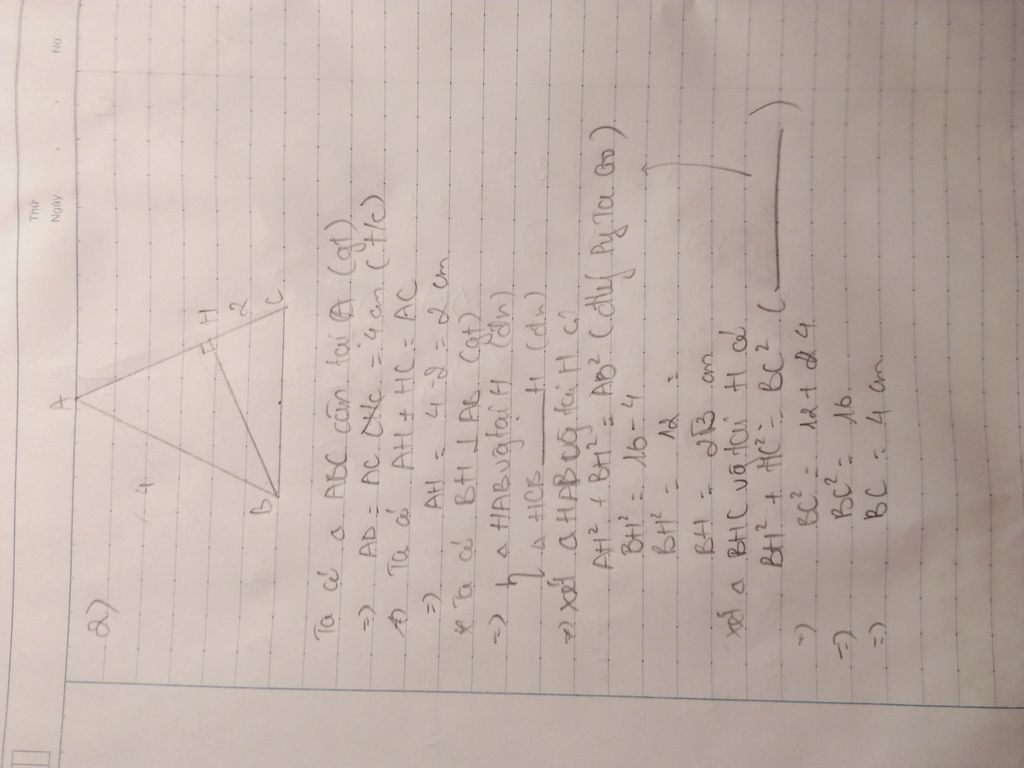 Thứ
Ngày
No.
2)
A
4
H
2
B
C
Ta có △ ABC cân tại A (gt)
=> AB = AC = 4 cm (t/c)
Ta có AH + HC = AC
=> AH = 4-2 = 2 cm
* Ta có BH ⊥ AB (gt)
=> △ HAB vg tại H (đn)
△ HCB ___ H (đn)
=> xét △ HAB vg tại H có
AH² + BH² = AB² (đly PyTa Go)
BH² = 16 - 4
BH² = 12 =
BH = 2√3 cm
xét △ BHC vg tại H có
BH² + HC² = BC² ( ___ )
=> BC² = 12 + 4
=> BC² = 16
=> BC = 4 cm